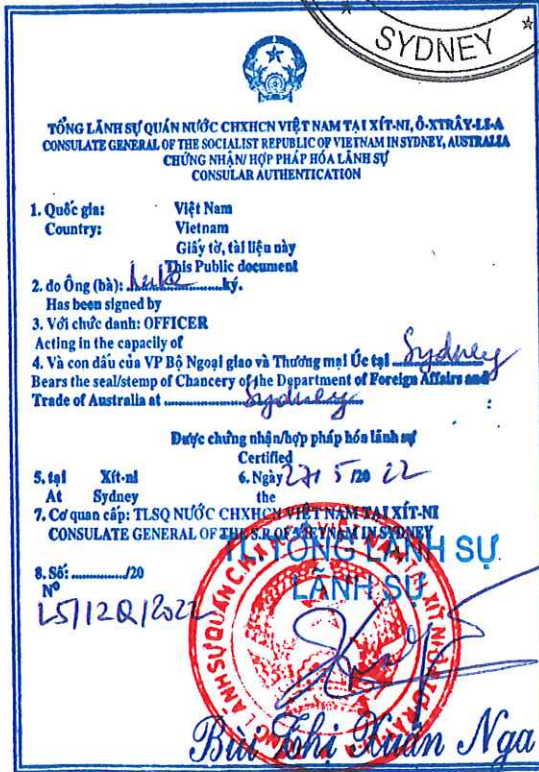 SYDNEY
TỔNG LÃNH SỰ QUÁN NƯỚC CHXHCN VIỆT NAM TẠI XÍT-NI, Ô-XTRÂY-LI-A
CONSULATE GENERAL OF THE SOCIALIST REPUBLIC OF VIETNAM IN SYDNEY, AUSTRALIA
CHỨNG NHẬN/ HỢP PHÁP HÓA LÃNH SỰ
CONSULAR AUTHENTICATION
1. Quốc gia: Việt Nam
Country: Vietnam
Giấy tờ, tài liệu này
This Public document
2. do Ông (bà): Luke ký.
Has been signed by
3. Với chức danh: OFFICER
Acting in the capacity of
4. Và con dấu của VP Bộ Ngoại giao và Thương mại Úc tại Sydney
Bears the seal/stemp of Chancery of the Department of Foreign Affairs and
Trade of Australia at Sydney
Được chứng nhận/hợp pháp hóa lãnh sự
Certified
5. tại Xít-ni 6. Ngày 27/ 5 /20 22
At Sydney the
7. Cơ quan cấp: TLSQ NƯỚC CHXHCN VIỆT NAM TẠI XÍT-NI
CONSULATE GENERAL OF THE S.R OF VIETNAM IN SYDNEY
TL.TỔNG LÃNH SỰ
LÃNH SỰ
8. Số: ............/20
Nº
Bùi Thị Xuân Nga